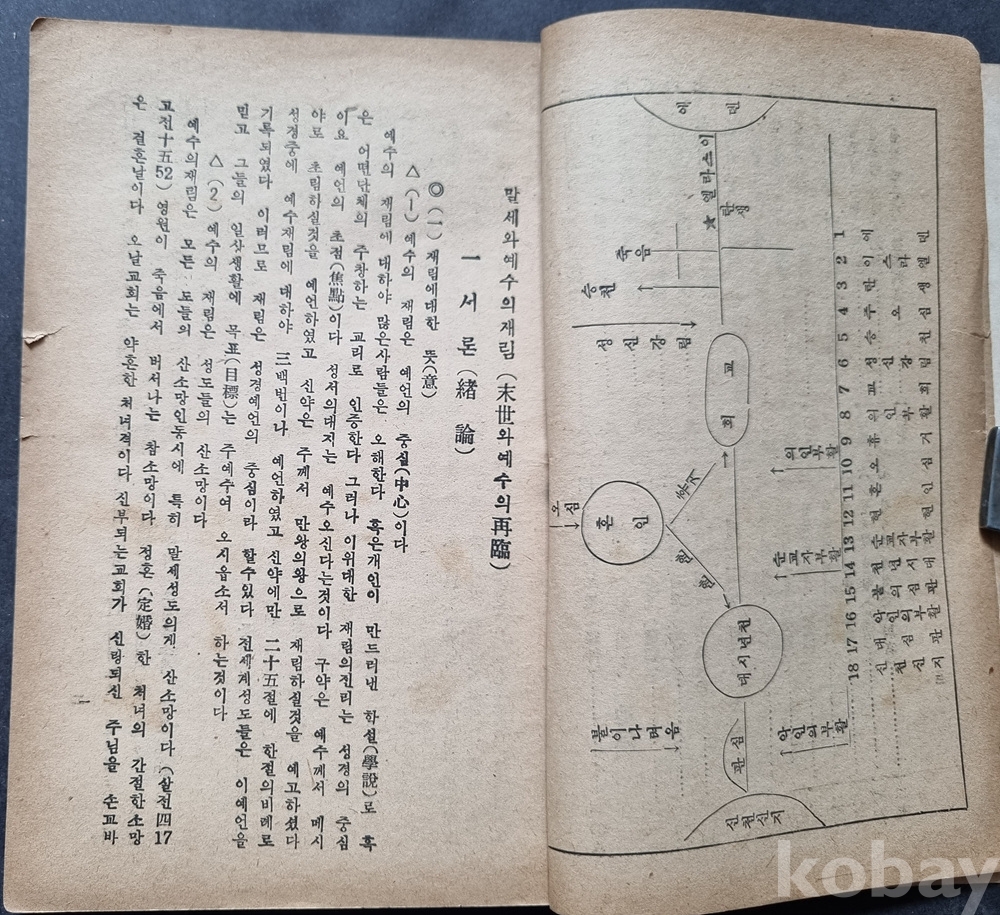 에덴
이스라엘
탄생
죽음
승천
성신강림
교회
의인부활
오심
혼인
휴거
순교자부활
천년시대
불이나려옴
악인의부활
심판
신천신지
1 에덴
2 이스라엘
3 탄생
4
5 승천
6 성신강림
7 교회
8 의인부활
9 휴거
10 오심
11 혼인
12
13 순교자부활
14 천년시대
15
16 악인의부활
17 대심판
18 신천신지
말세와예수의재림(末世와예수의再臨)
一 서론(緖論)
◎(一) 재림에대한 뜻(意)
△(1) 예수의 재림은 예언의 중심(中心)이다
예수의 재림에 대하야 많은사람들은 오해한다 혹은개인이 만드러낸 학설(學說)로 혹
은 어떤단체의 주창하는 교리로 인증한다 그러나 이위대한 재림의진리는 성경의 중심
이요 예언의 초점(焦點)이다 성서의대지는 예수오신다는것이다 구약은 예수께서 메시
야로 초림하실것을 예언하였고 신약은 주께서 만왕의왕으로 재림하실것을 예고하셨다
성경중에 예수재림에 대하야 三백번이나 예언하였고 신약에만 二十五절에 한절의비례로
기록되였다 이러므로 재림은 성경예언의 중심이라 할수있다 전세계성도들은 이예언을
믿고 그들의 일상생활에 목표(目標)는 주예수여 오시옵소서 하는것이다
△(2) 예수의 재림은 성도들의 산소망이다
예수의재림은 모든 성도들의 산소망인동시에 특히 말세성도의게 산소망이다(살전四17
고전十五52) 영원이 죽음에서 버서나는 참소망이다 정혼(定婚)한 처녀의 간절한소망
은 결혼날이다 오날교회는 약혼한 처녀격이다 신부되는교회가 신랑되신 주님을 손꼬바
一
kobay